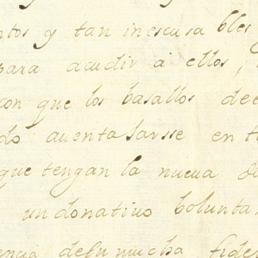 ntos y tan inescusa bles
para acudir â ellos,
con que los basallos de
do auentasarsse en t
que tengan la nueua d
un donatiuo bolunta
encia desu mucha fide